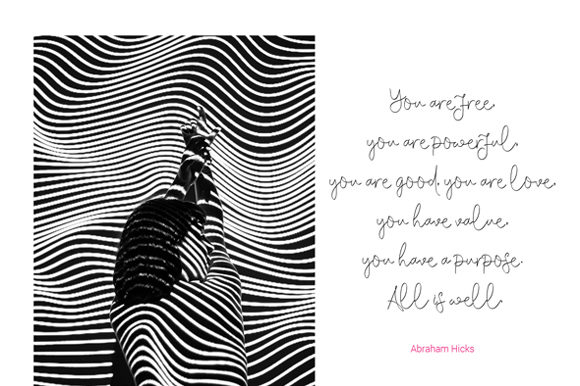 You are free,
you are powerful,
you are good, you are love,
you have value,
you have a purpose.
All is well.
Abraham Hicks